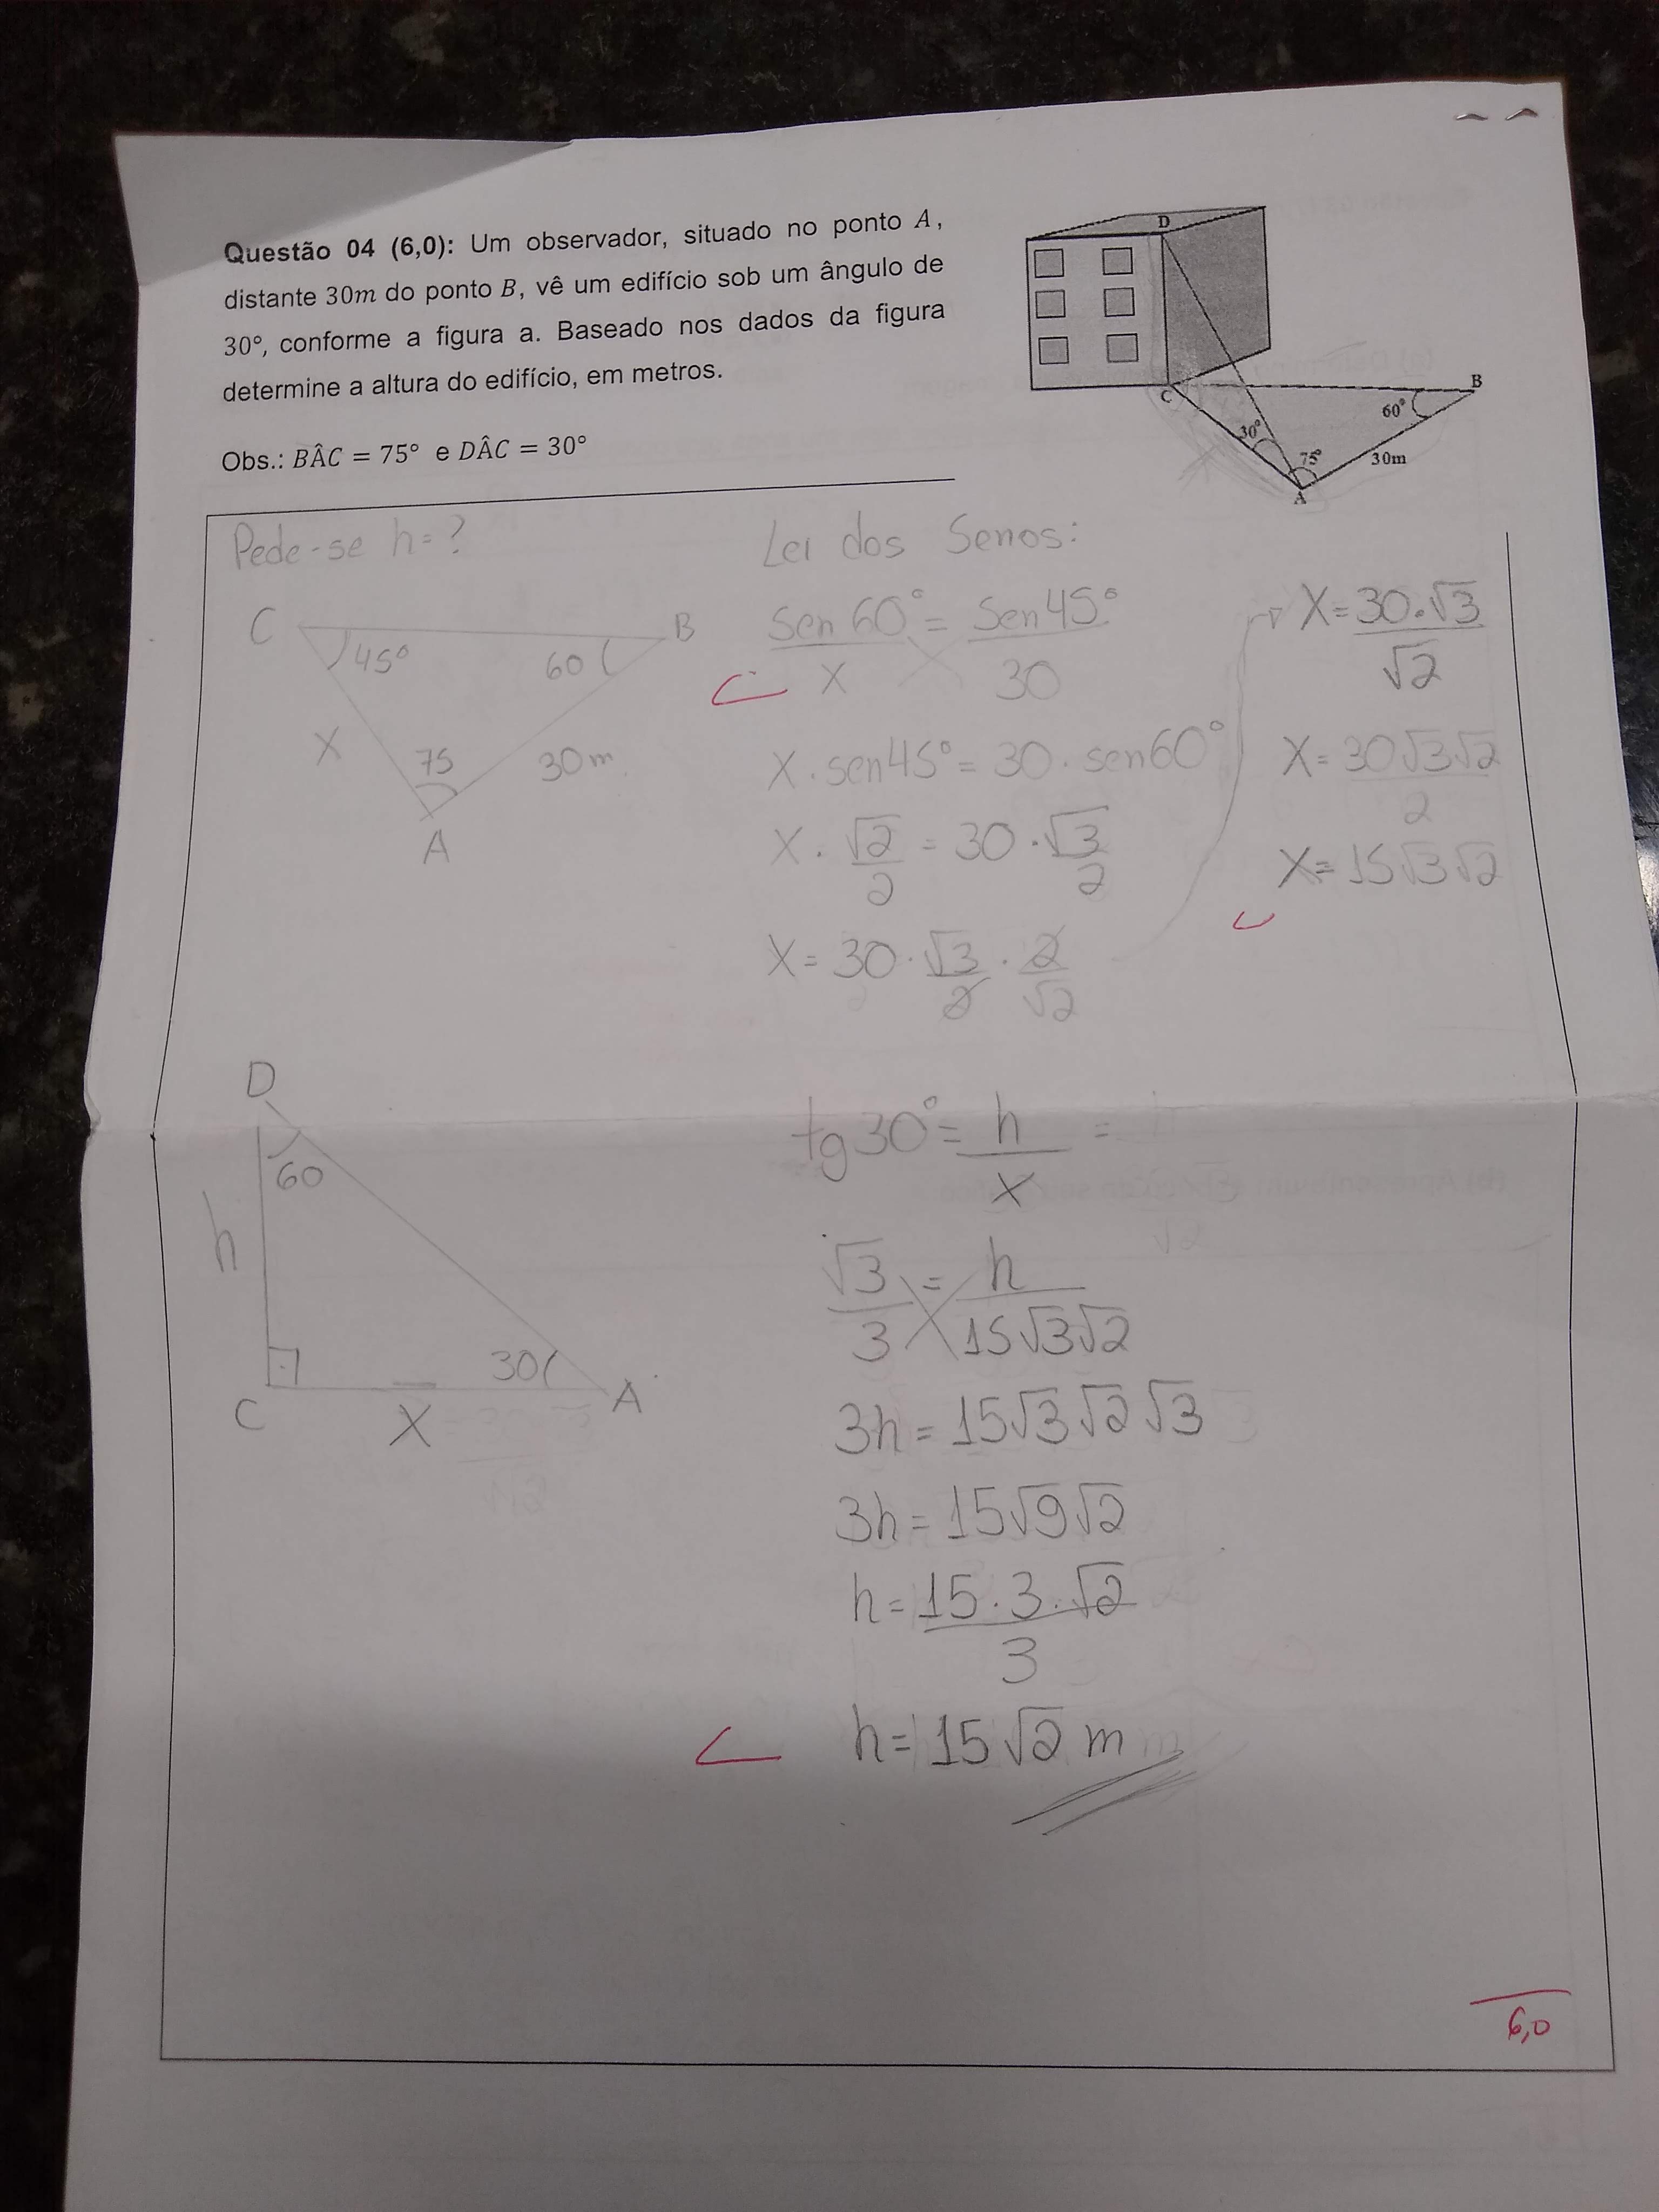 Questão 04 (6,0): Um observador, situado no ponto A,
distante 30m do ponto B, vê um edifício sob um ângulo de
30°, conforme a figura a. Baseado nos dados da figura
determine a altura do edifício, em metros.
Obs.: BÂC = 75° e DÂC = 30°
D
C
B
60°
30°
75°
30m
A
Pede-se h=?
C
B
45°
60
X
75
30m
A
Lei dos Senos:
sen 60° = sen 45°
x 30
X · sen45° = 30 · sen60°
X · √2/2 = 30 · √3/2
X = 30 · √3/2 · 2/√2
X = 30·√3/√2
X = 30√3√2/2
X = 15√3√2
D
60
h
30
C
X
A
tg30° = h/x =
√3/3 = h/15√3√2
3h = 15√3√2√3
3h = 15√9√2
h = 15·3·√2/3
h = 15√2 m
6,0